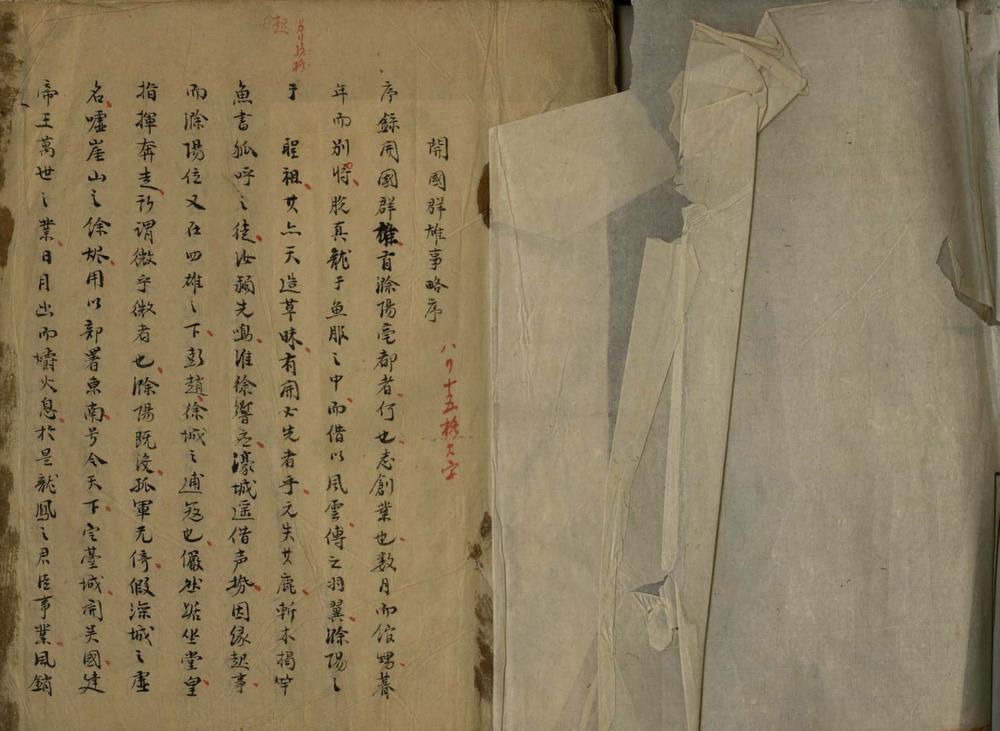 開國群雄事略序
八行十五格大字
序錄開國群雄首滁陽亳都者何也志創業也数月而館甥暮
年而别將脫真龍于魚服之中而借以風雲傅之羽翼滁陽之
于
聖祖其亦天造草昧有開必先者乎元失其鹿斬木揭竿
魚書狐呼之徒汝潁先鳴淮徐響应濠城遥借声势因緣起事
而滁陽位又在四雄之下彭趙徐城之逋寇也儼然踞坐堂皇
指揮奔走所謂微乎微者也滁陽既没孤軍无倚假滁城之虚
名嘘崖山之馀烬用以部署東南号令天下定臺城開吴國建
帝王萬世之業日月出而爝火息於是龍鳳之君臣事業風銷